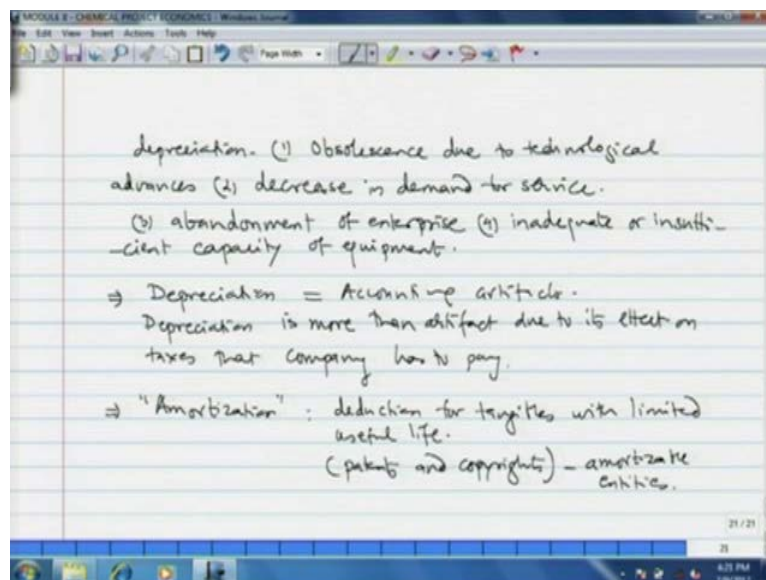 MODULE 8 - CHEMICAL PROJECT ECONOMICS - Windows Journal
File Edit View Insert Actions Tools Help
Page Width
depreciation. (1) Obsolescence due to technological
advances (2) decrease in demand for service.
(3) abandonment of enterprise (4) inadequate or insuffi-
-cient capacity of equipment.
⇒ Depreciation = Accounting artifact.
Depreciation is more than artifact due to its effect on
taxes that company has to pay.
⇒ "Amortization" : deduction for tangibles with limited
useful life.
(patents and copyrights) - amortizable
entities.
21/21
21
4:21 PM